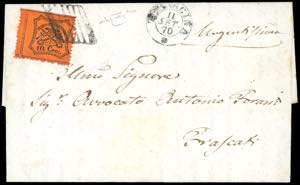 10 CENT
11
SET
70
Urgentissima
Illmo Signore
Sig. Avvocato Antonio
Frascati